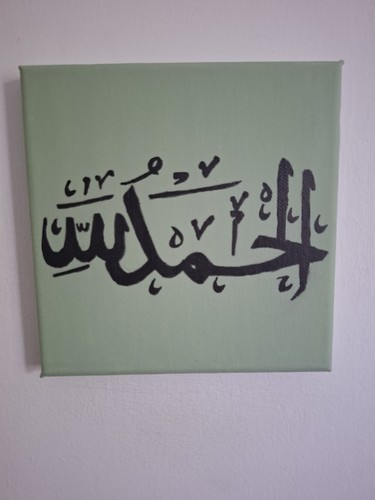 الحمدُ لله